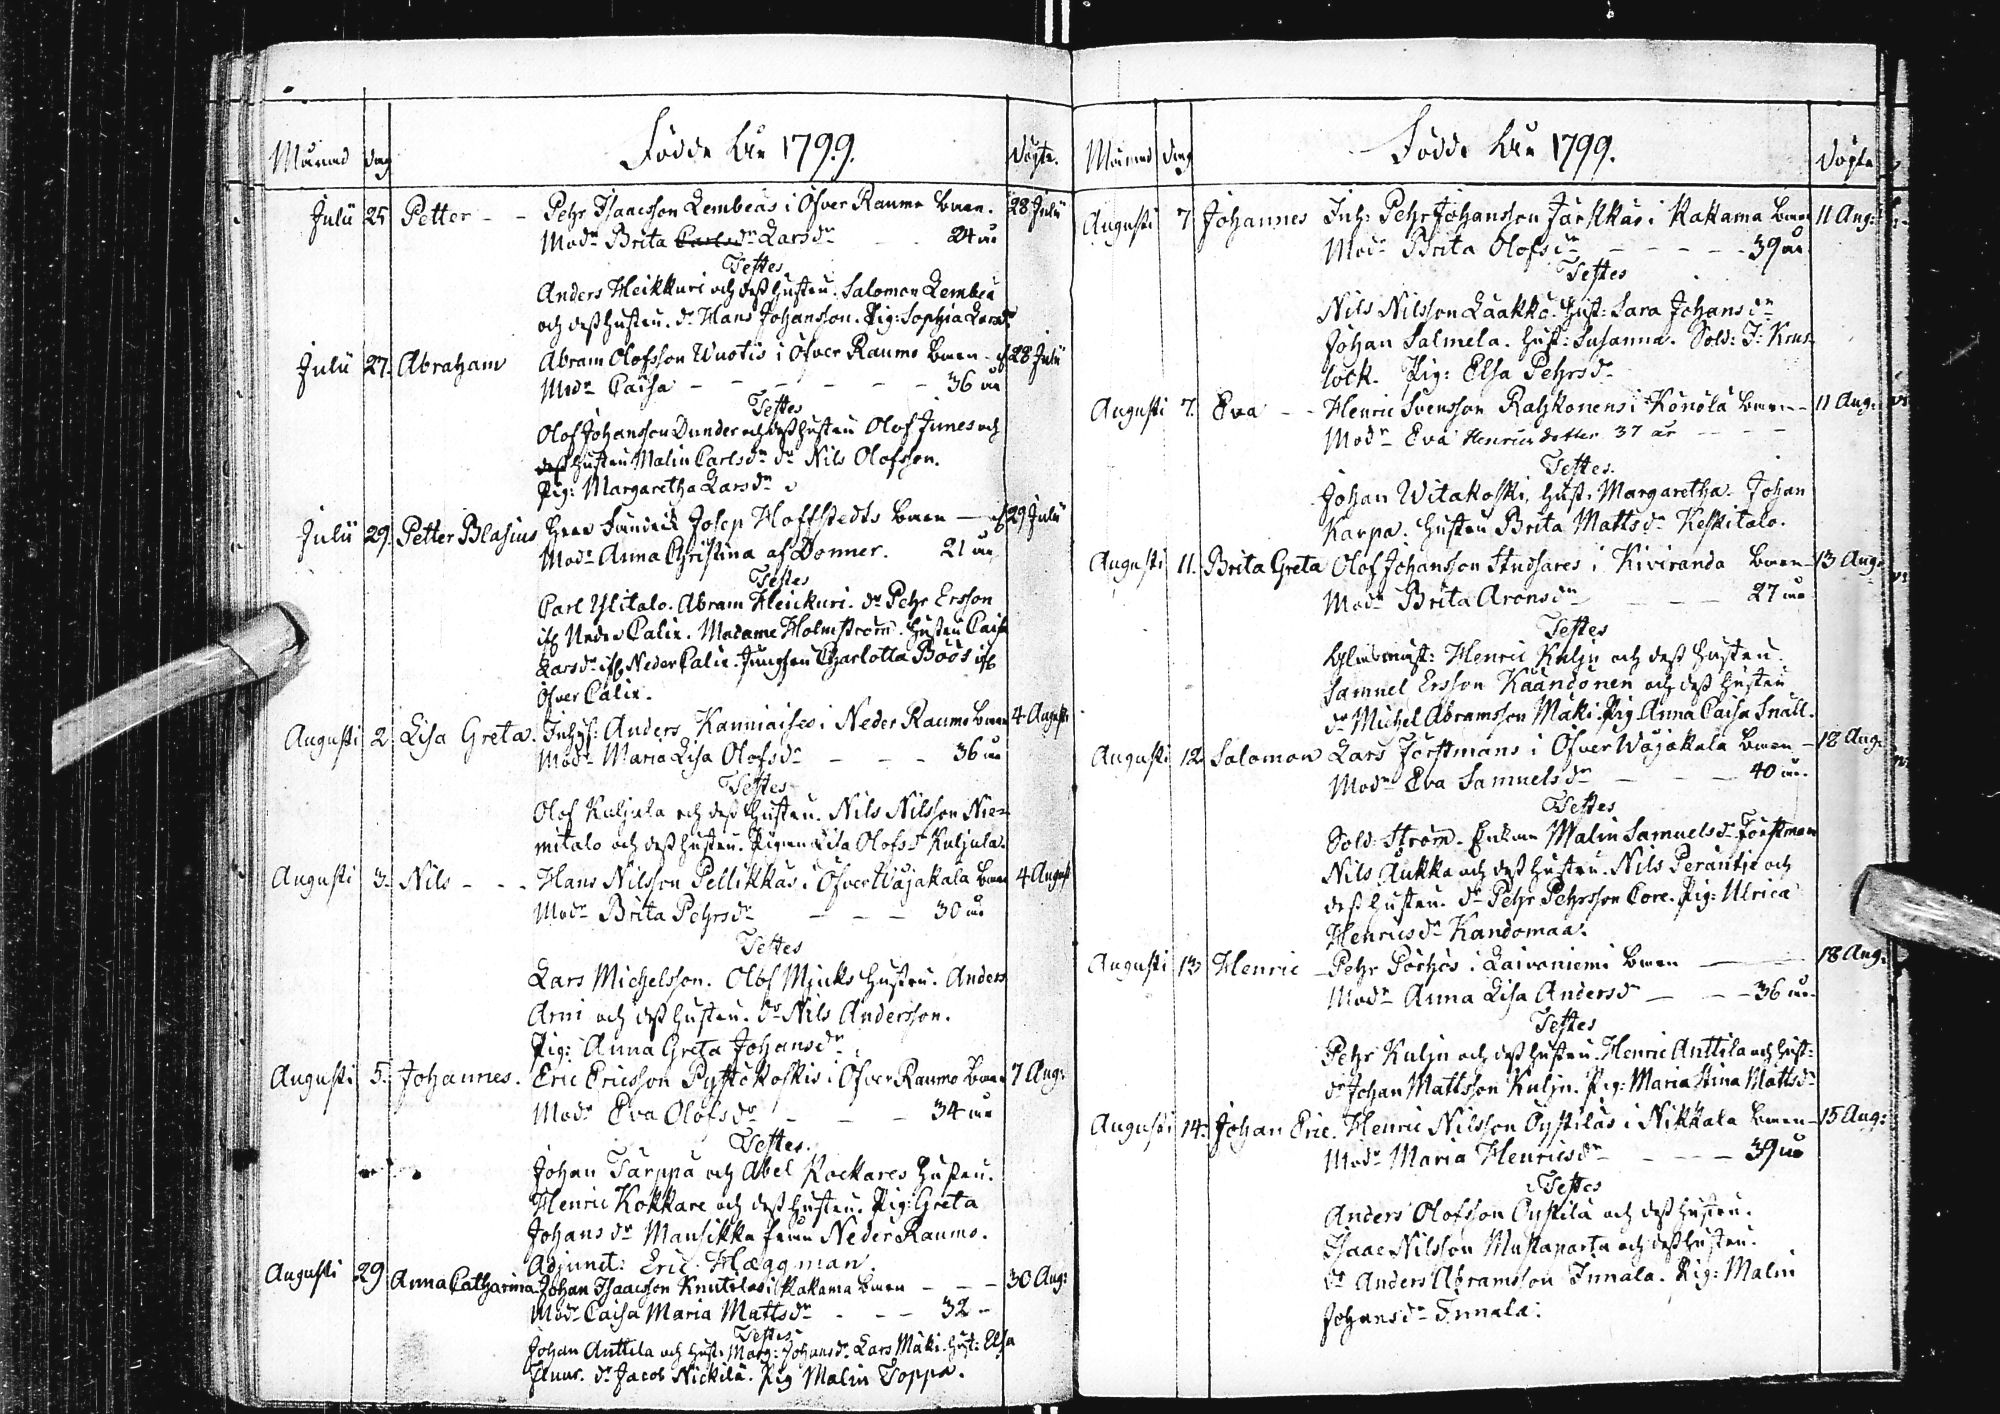 Månad dag Födde År 1799. Döpte.
Julii 25 Petter - - Pehr Isaacsson Lembeäs i Öfver Raumo barn. 28 Julii
Modr Brita Carlsdr Larsdr - - 24 år
Testes
Anders Heikkuri och dess hustru. Salomon Lembeä
och dess hustru. dr Hans Johansson. Pig: Sophia Larsdr
Julii 27. Abraham Abram Olofsson Wuotis i Öfver Raumo barn - 28 Julii
Modr Caisa - - - - - - 36 år
Testes
Olof Johansson Dunder och dess hustru Olof Junes och
dess hustru Malin Carlsdr dr Nils Olofsson.
Pig: Margaretha Larsdr
Julii 29. Petter Blasius Herr Josep Hoffstedts barn - 29 Julii
Modr Anna Christina af Donner. 21 år
Testes
Carl Ylitalo. Abram Heickuri. dr Pehr Ersson
ifr Neder Calix. Madame Holmström. hustru Caisa
Larsdr ifr Neder Calix. Jungfru Charlotta Böös ifr
Öfver Calix.
Augusti 2 Lisa Greta. Inhys: Anders Kanniaises i Neder Raumo barn 4 Augusti
Modr Maria Lisa Olofsdr - - - 36 år
Testes
Olof Kuljula och dess hustru. Nils Nilsson Nie-
mitalo och dess hustru. Pigan Lisa Olofsdr Kuljula.
Augusti 3. Nils - - - Hans Nilsson Pellikkäs i Öfver Wojakala barn 4 August
Modr Brita Pehrsdr - - - 30 år
Testes
Lars Michelsson. Olof Mjuks hustru. Anders
Arni och dess hustru. dr Nils Andersson.
Pig: Anna Greta Johansdr
Augusti 5. Johannes. Eric Ericsson Pyssökoskis i Öfver Raumo barn 7 Aug:
Modr Eva Olofsdr - - - 34 år
Testes.
Johan Tärppä och Abel Rockares hustru.
Henric Kokkare och dess hustru. Pig: Greta
Johansdr Mansikka från Neder Raumo.
Adjunct: Eric Hæggman.
Augusti 29 Anna Catharina Johan Isaacsson Knutilas i Kakama barn - - - 30 Aug:
Modr Caisa Maria Mattsdr - - - 32 -
Testes
Johan Anttila och hust: Marg: Johansdr. Lars Mäki. hust: Elsa
dr Jacob Nickilä. Pig Malin Toppa.
Månad dag Födde År 1799. Döpte
Augusti 7 Johannes Inh: Pehr Johansson Järkkäs i Kakama barn 11 Aug:
Modr Brita Olofsdr - - - - - 39 år.
Testes
Nils Nilsson Laakko. Hust: Sara Johansdr
Johan Salmela. Hust: Susanna. Sold: J: Krus-
lock. Pig: Elsa Pehrsdr
Augusti 7. Eva - - Henric Svensson Rahkonens i Könölä barn - 11 Aug:
Modr Eva Henricsdotter 37 år - - -
Testes.
Johan Witakoski, Hust. Margaretha. Johan
Karpa. hustru Brita Mattsdr Keskitalo.
Augusti 11. Brita Greta Olof Johansson Studsares i Kiviranda barn - 13 Aug:
Modr Brita Aronsdr - - - 27 år.
Testes
Henric Kulju och dess hustru.
Samuel Ersson Kaandonen och dess hustru
dr Michel Abramsson Mäki. Pig Anna Caisa Snäll.
Augusti 12. Salomon Lars Förstmans i Öfver Wojakala barn - 18 Aug:
Modr Eva Samuelsdr - - - 40 år.
Testes
Sold: Ström. Enkan Malin Samuelsdr Förstman
Nils Aukka och dess hustru. Nils Peräntje och
dess hustru. dr Pehr Pehrsson Core. Pig: Ulrica
Henricsdr Kandomaa.
Augusti 13 Henric Pehr Pörhös i Laivaniemi barn - 18 Aug:
Modr Anna Lisa Andersdr - - - 36 år.
Testes
Pehr Kulju och dess hustru. Henric Anttila och hust:
dr Johan Mattsson Kulju. Pig: Maria Stina Mattsdr
Augusti 14. Johan Eric. Henric Nilsson Pystiläs i Nikkala barn - 15 Aug:
Modr Maria Henricsdr - - - 39 år
Testes
Anders Olofsson Pystilä och dess hustru.
Isaac Nilsson Mustaparta och dess hustru.
dr Anders Abramsson Innala. Pig: Malin
Johansdr Innala.